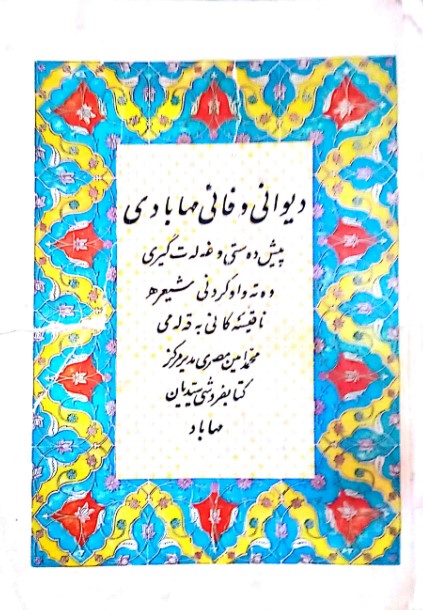 دیوانی وفائی مهابادی
پیش ده ستی و غه له ت گیری
وه ته واو کردنی شیعره
ناقیئه کانی به قه له می
محمد امین مصری مدیر مرکز
کتابفروشی سیدیان
مهاباد